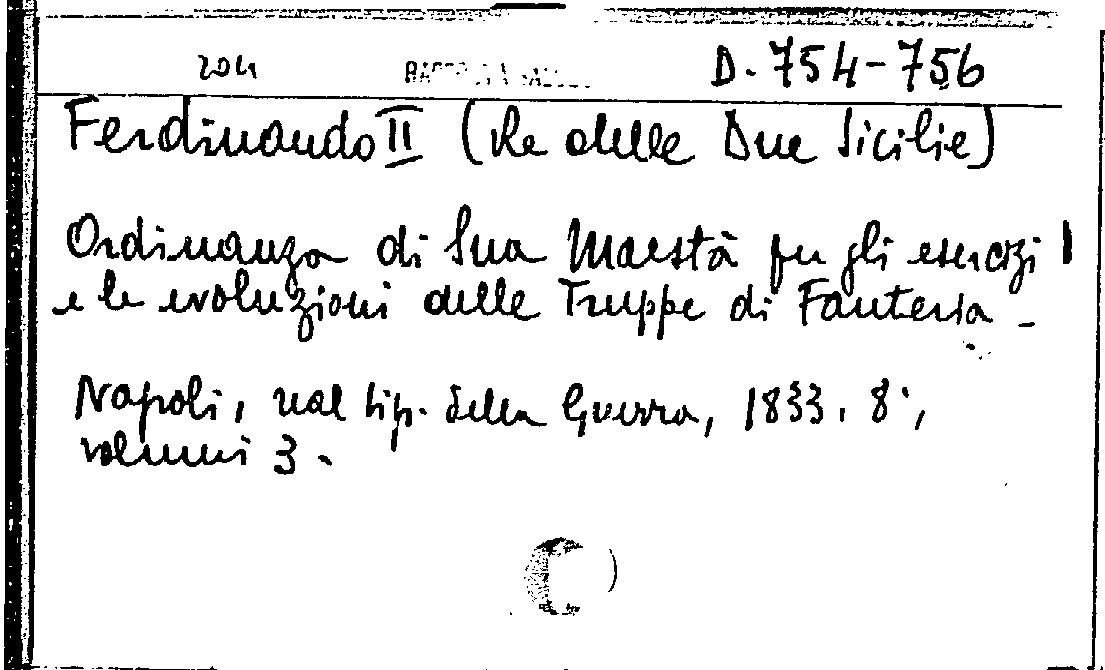 D. 754-756
Ferdinando II (Re delle Due Sicilie)
Ordinanza di Sua Maestà per gli esercizi
e le evoluzioni delle Truppe di Fanteria -
Napoli, real tip. della Guerra, 1833. 8°,
volumi 3.